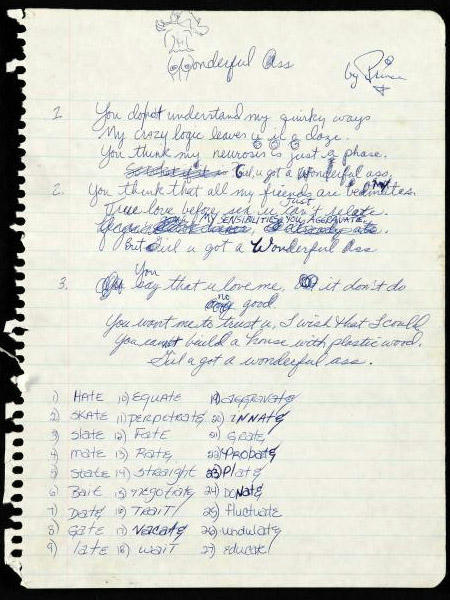 Wonderful Ass
by Prince
1. You do not understand my quirky ways
My crazy logic leaves u in a daze.
You think my neurosis is just a phase.
Girl, u got a Wonderful ass.
2. You think that all my friends are bedmates.
True love before sex u just can't relate.
MY SENSIBILITIES YOU AGGRAVATE
But Girl u got a Wonderful Ass
3. You say that u love me, it don't do
no good.
You want me to trust u, I wish that I could,
You cannot build a house with plastic wood.
Girl u got a wonderful ass.
1) HATE 10) EQUATE 19) aggravate
2) SKATE 11) perpetrate 20) INNATE
3) slate 12) FATE 21) Grate
4) mate 13) Rate 22) Probate
5) State 14) Straight 23) Plate
6) Bait 15) negotiate 24) DoNate
7) Date 16) TRAIT 25) fluctuate
8) Gate 17) Vacate 26) undulate
9) late 18) wait 27) educate